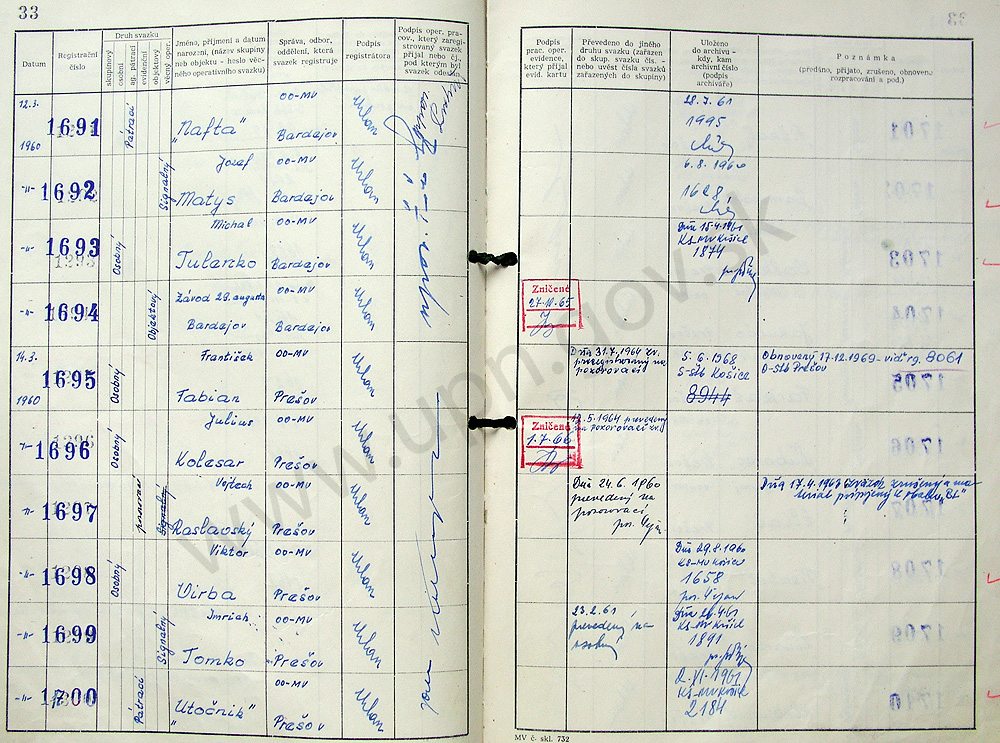 33
Datum
Registrační číslo
Druh svazku
skupinový
osobní
ag. pátrací
evidenční
objektový
věcný oper.
Jméno, příjmení a datum
narození, (název skupiny
neb objektu - heslo věc-
ného operativního svazku)
Správa, odbor,
oddělení, která
svazek registruje
Podpis
registrátora
Podpis oper. pra-
cov., který zaregi-
strovaný svazek
přijal nebo čj.,
pod kterým byl
svazek odeslán
Podpis
prac. oper.
evidence,
který přijal
evid. kartu
Převedeno do jiného
druhu svazku (zařazen
do skup. svazku čís. -
nebo uvést čísla svazků
zařazených do skupiny)
Uloženo
do archivu -
kdy, kam
archivní číslo
(podpis
archiváře)
Poznámka
(předáno, přijato, zrušeno, obnoveno
rozpracování a pod.)
12.3.
1960
1691
Pátrací
"Nafta"
OO-MV
Bardejov
Urban
28.7.61
1995
-"-
1692
Signalný
Jozef
Matys
OO-MV
Bardejov
Urban
6.8.1960
1628
-"-
1693
Osobný
Michal
Tulenko
OO-MV
Bardejov
Urban
Dňa 15.4.1961
KS-MV Košice
1874
-"-
1694
Objektový
Závod 29. augusta
Bardejov
OO-MV
Bardejov
Urban
Zničené
27.10.65
14.3.
1960
1695
Osobný
František
Fabian
OO-MV
Prešov
Urban
Dňa 31.7.1964 zv.
preregistrovaný na
pozorovací
5.6.1968
S-ŠtB Košice
8944
Obnovený 17.12.1969 - viď rg. 8061
O-ŠtB Prešov
-"-
1696
Osobný
Julius
Kolesar
OO-MV
Prešov
Urban
Zničené
1.7.66
12.5.1964 prevedený
na pozorovací zv.
-"-
1697
Signalný
Vojtech
Raslavský
OO-MV
Prešov
Urban
Dňa 24.6.1960
prevedený na
pozorovací
Dňa 17.4.1963 zväzok zrušený a ma-
teriál pripojený k obalu "Et"
-"-
1698
Osobný
Viktor
Virba
OO-MV
Prešov
Urban
Dňa 29.8.1960
KS-MV Košice
1658
-"-
1699
Signalný
Imrich
Tomko
OO-MV
Prešov
Urban
23.2.61
prevedený na
osobný
KS-MV Košice
1891
-"-
1700
Pátrací
"Utočník"
OO-MV
Prešov
Urban
2.VI.1961
KS-MV Košice
2184
MV č. skl. 732
www.upn.gov.sk